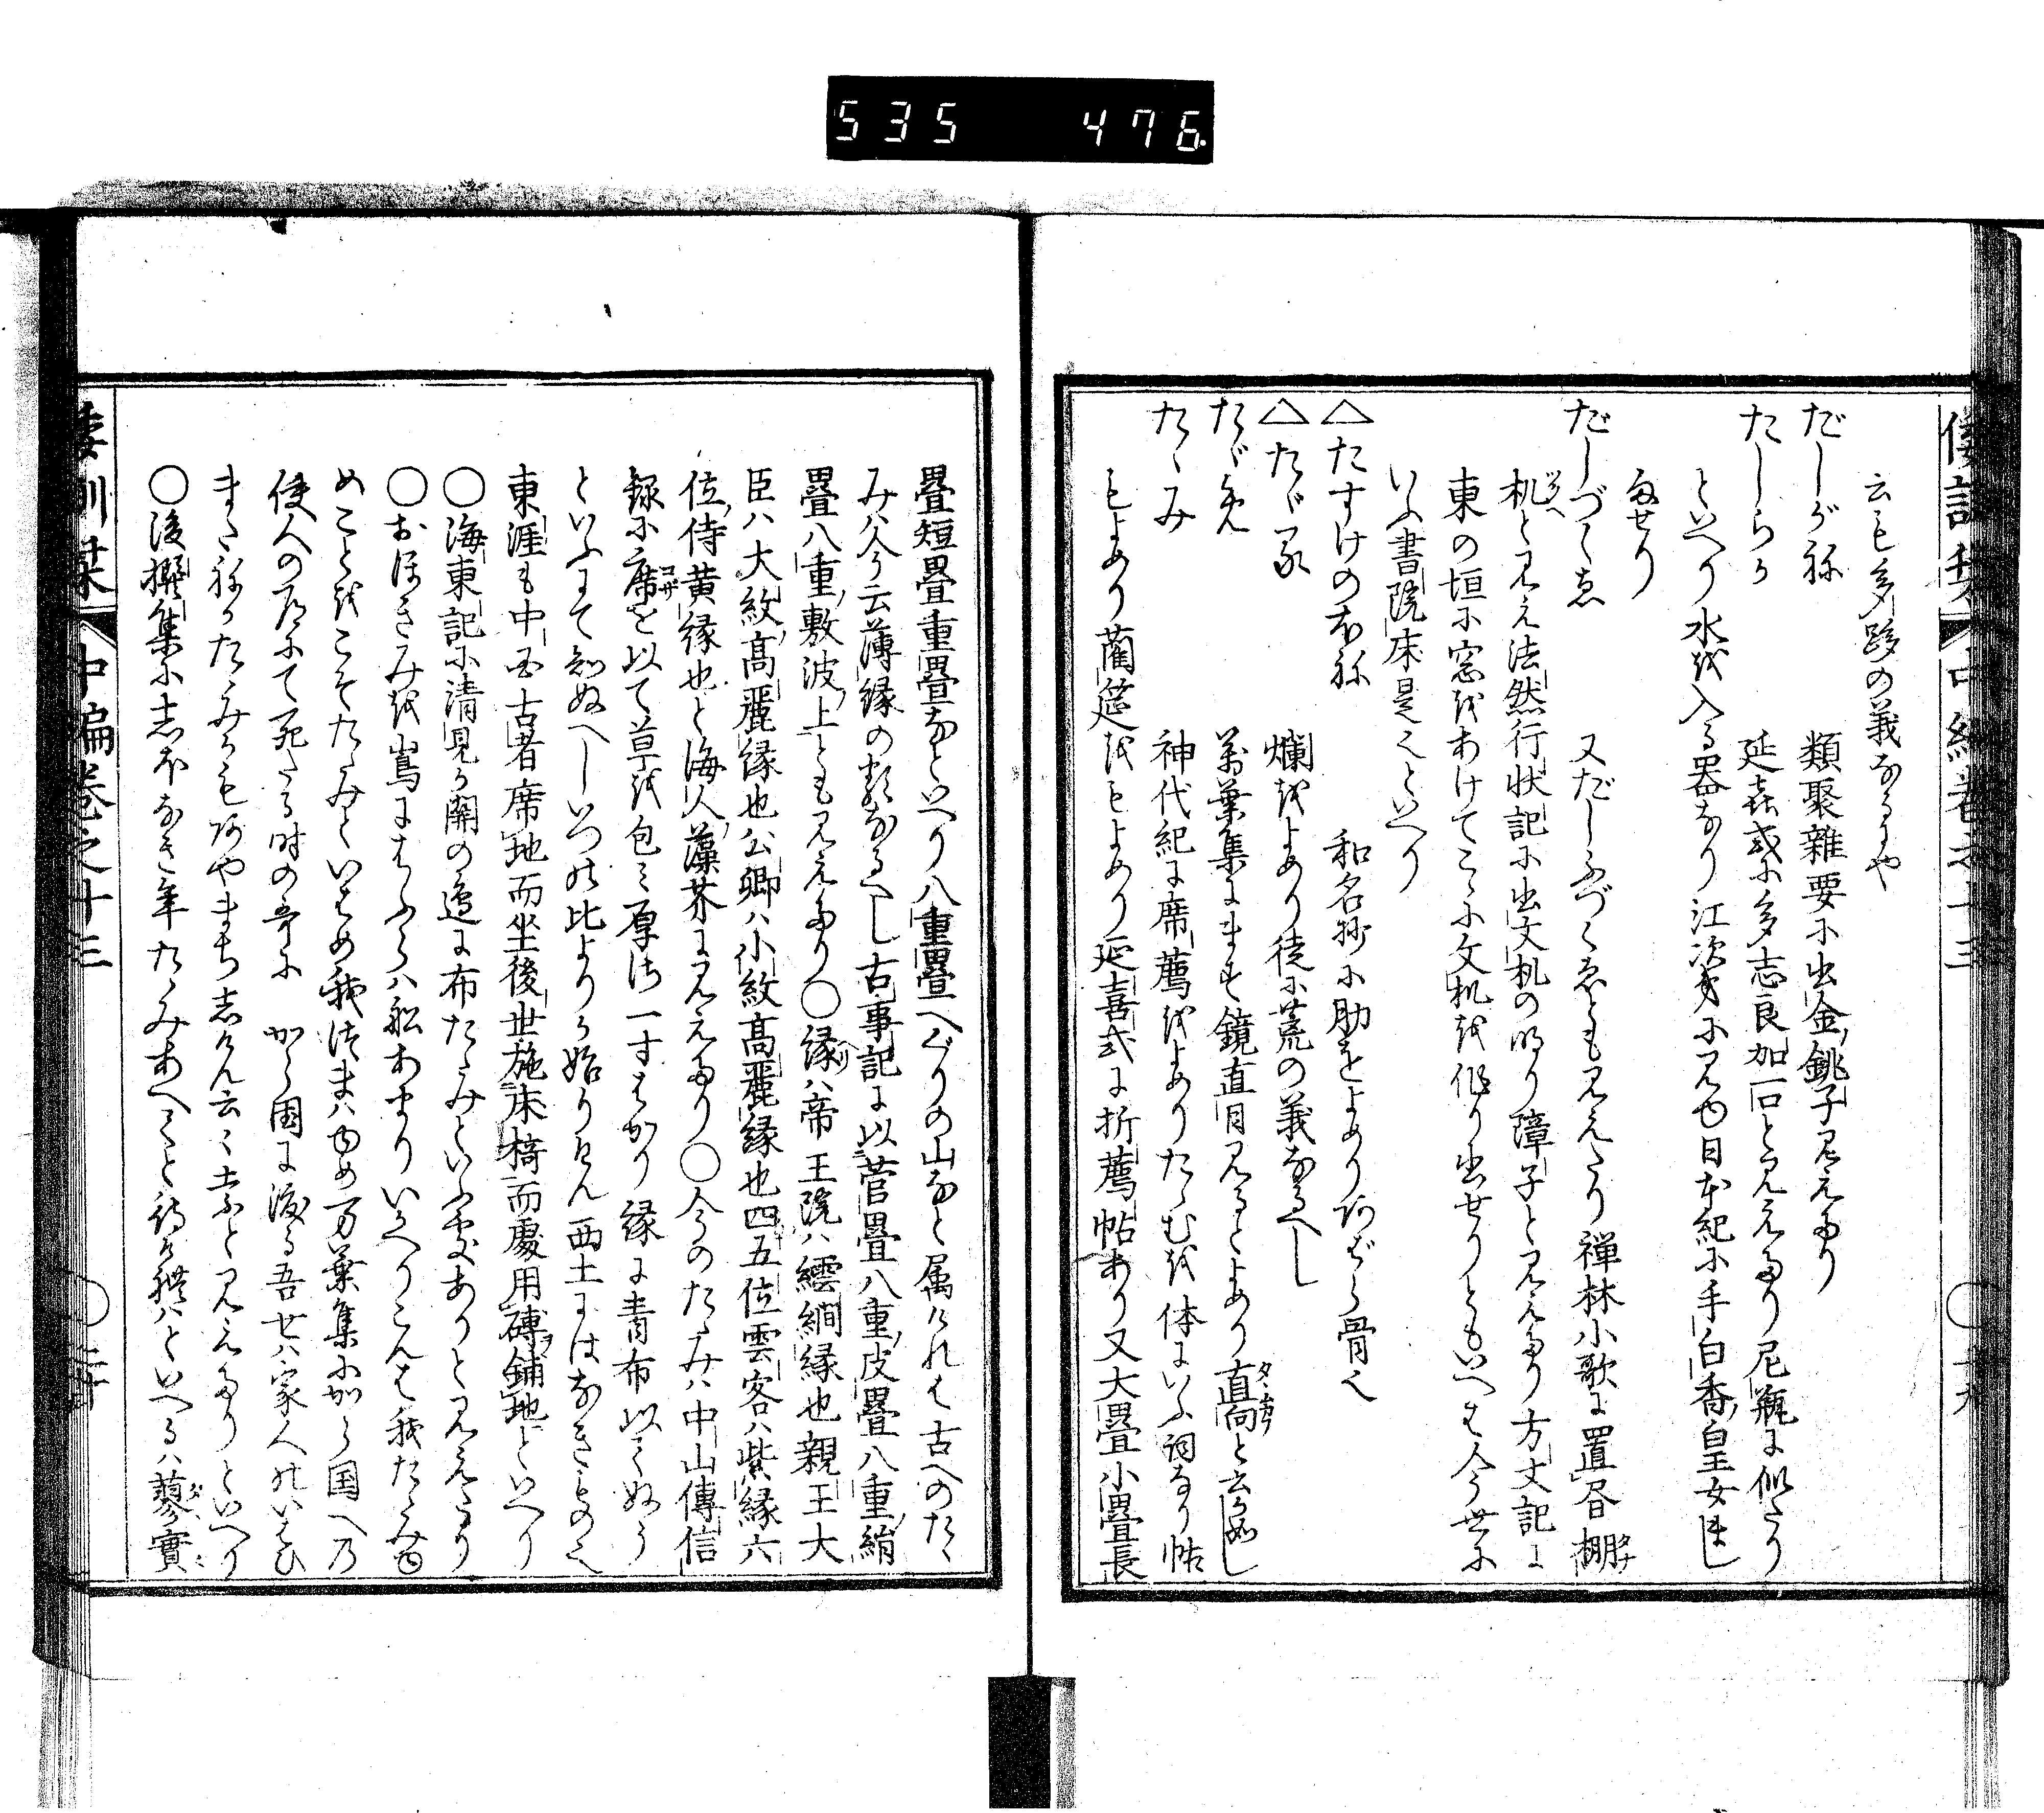 535 476
云も多跢の義なるにや
だしがね 類聚雑要に出金銚子見えたり
たしらか 延喜式に多志良加一口と見えたり尼瓶に似たり
といへり水を入る器なり江次第に見ゆ日本紀に手白香皇女ましませり
だしづくゑ 又だしふづくゑとも見えたり禅林小歌に置昬棚
机と見え法然行状記に出文机の明り障子と見えたり方丈記に
東の垣に窓をあけてこゝに文机を作り出せりともいへは今う世に
いふ書院床是也といへり
△たすけのほね 和名抄に肋をよめりあばら骨也
△たゞる 爛をよめり徒に荒の義なるへし
たゞめ 万葉集にます鏡直目見るとよめり直向と云か如し
たゝみ 神代紀に席薦をよめりたゝむを体にいふ詞なり帖
もよめり藺筵をもよめり延喜式に折薦帖あり又大畳小畳長
倭訓栞 中編巻之十三
畳短畳重畳なといへり八重畳へぐりの山なと属けれは古へのたゝ
み八今云薄縁の類なるへし古事記に以菅畳八重皮畳八重絹
畳八重敷波上とも見えたり○縁ハ帝王院ハ繧繝縁也親王大
臣ハ大紋高麗縁也公卿ハ小紋高麗縁也四五位雲客ハ紫縁六
位侍黄縁也と海人藻芥に見えたり○今のたゝみハ中山傳信
録に席を以て草を包ミ厚サ一寸はかり縁に青布以てぬう
といふにて知ぬへしいつの比よりか始りけん西土にはなきもの也
東涯も中国古者席地而坐後世施床椅而處用磚鋪地といへり
○海東記に清見か關の邉に布たゝみといふ処ありと見えたり
○おほきみを嶌にはふらハ舩あまりいかへりこんそ我たゝみゆ
めことをこそたゝみといはめ我つまハゆめ万葉集にから国へ乃
使人の府にて死たる時の哥に から国に渡る吾せハ家人のいはひ
またねかたゝみかもあやまちしけん云々亦と見えたりといへり
○後撰集に志ほなき年たゝみあへてと侍けれハといへるハ蓼實